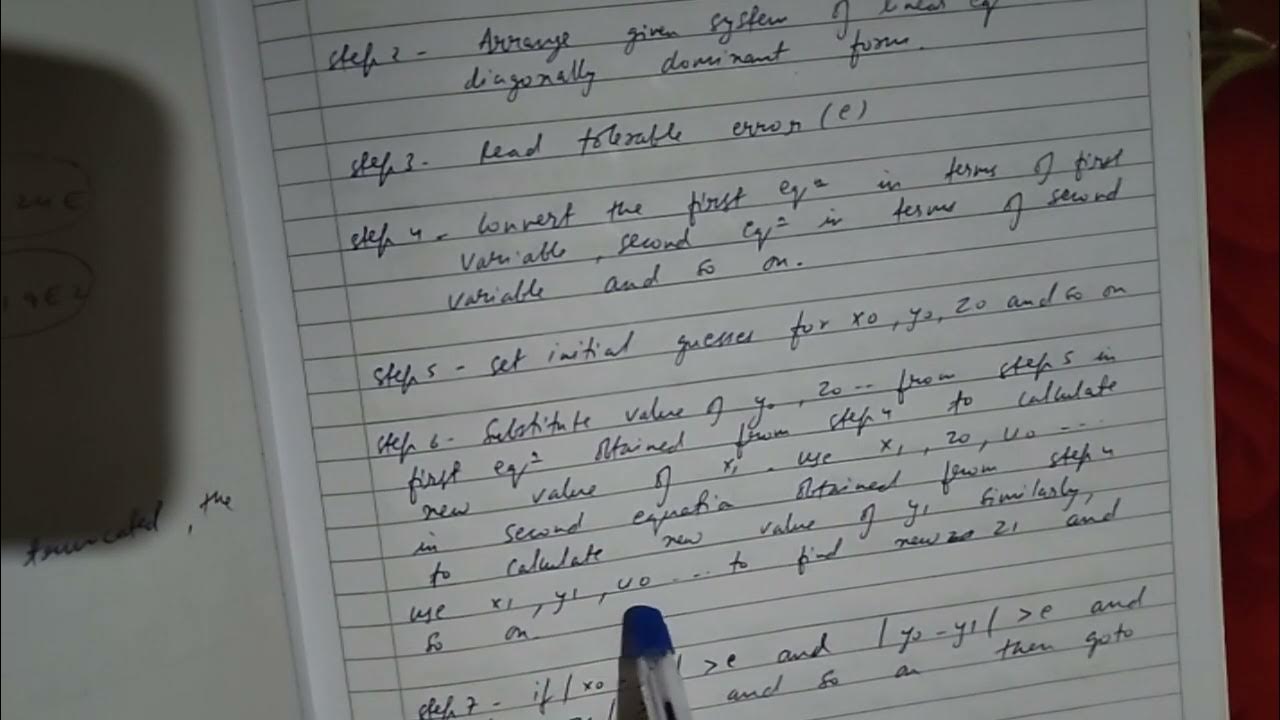 step 2 - Arrange given system of linear eq
diagonally dominant form.
step 3 - Read tolerable error (e)
step 4 - Convert the first eqⁿ in terms of first
variable, second eqⁿ in terms of second
variable and so on.
step 5 - set initial guesses for x0, y0, z0 and so on
step 6 - Substitute value of y0, z0 -- from step 5 in
first eqⁿ obtained from step 4 to calculate
new value of x1. use x1, z0, u0 ---
in second equation obtained from step 4
to calculate new value of y1 similarly,
use x1, y1, u0 --- to find new z1 and
so on
step 7 - if |x0 - | >e and |y0-y1| >e and
and so on then goto
24 E
19 E 2
truncated, the